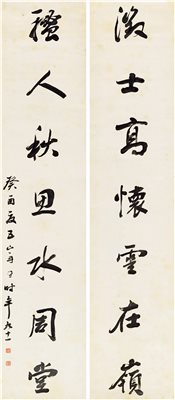 徵士高懷雲在嶺
騷人秋思水周堂
癸酉夏五山 時年九十一